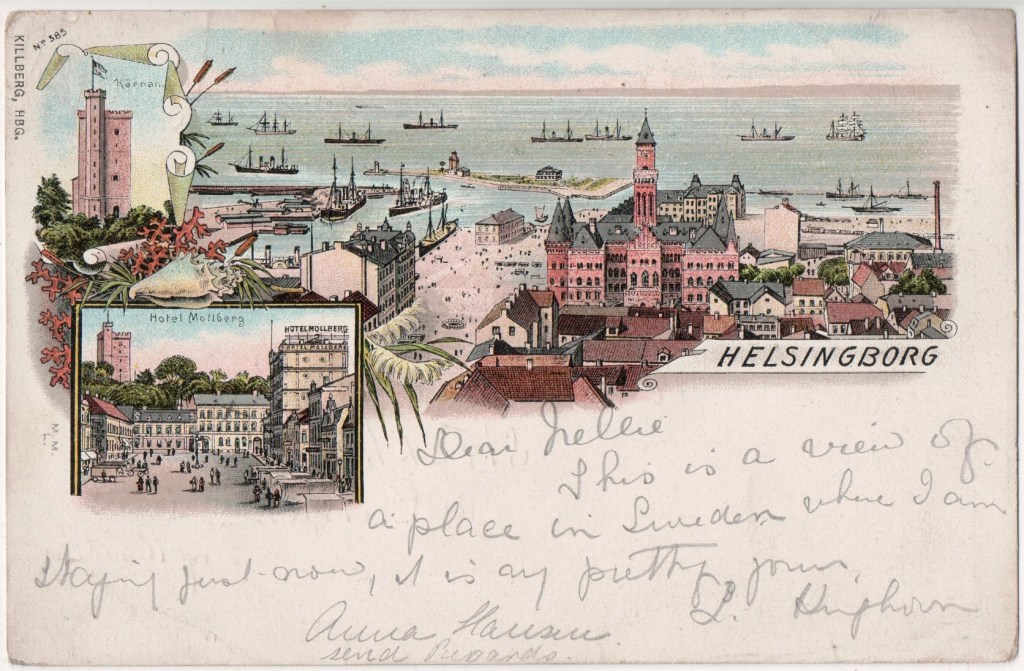 Nº 585
KILLBERG, HBG.
Kärnan
Hotel Mollberg
HOTEL MOLLBERG
HELSINGBORG
M. M. L.
Dear Nellie
This is a view of
a place in Sweden where I am
staying just now, it is pretty yours,
Anna Hansen
send Regards.